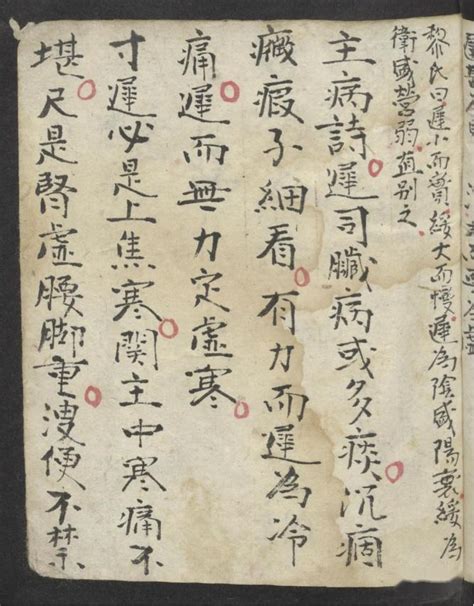 黎氏曰遲小而實緩大而慢遲為陰盛陽衰緩為
衛盛營弱宜別之
主病詩遲司臟病或多痰沉痼
癥瘕子細看有力而遲為冷
痛遲而無力定虛寒
寸遲必是上焦寒関主中寒痛不
堪尺是腎虛腰脚重溲便不禁